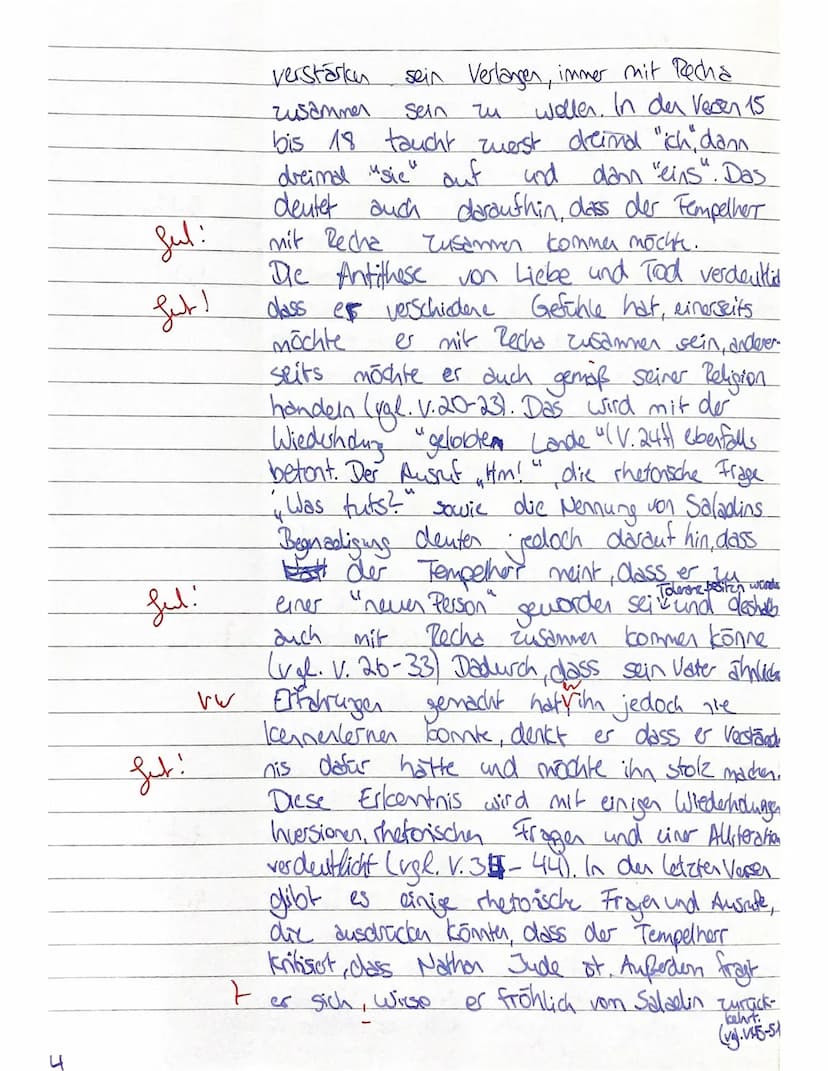 verstärken sein Verlangen, immer mit Recha
zusammen sein zu wollen. In den Versen 15
bis 18 taucht zuerst dreimal "ich", dann
dreimal "sie" auf und dann "eins". Das
deutet auch daraufhin, dass der Tempelherr
Gut! mit Recha zusammen kommen möchte.
Die Antithese von Liebe und Tod verdeutlicht
Gut! dass er verschiedene Gefühle hat, einerseits
möchte er mit Recha zusammen sein, anderer-
seits möchte er auch gemäß seiner Religion
handeln (vgl. V. 20-23). Das wird mit der
Wiederholung "gelobten Lande" (V. 24f) ebenfalls
betont. Der Ausruf „Hm!“, die rhetorische Frage
„Was tuts?“ sowie die Nennung von Saladins
Begnadigung deuten jedoch darauf hin, dass
der Tempelherr meint, dass er zu
Gut! einer "neuen Person" geworden sei Toleranz besitzen würde und deshalb
auch mit Recha zusammen kommen könne
(vgl. V. 26-33) Dadurch, dass sein Vater ähnliche
vw Erfahrungen gemacht hat w ihn jedoch nie
kennenlernen konnte, denkt er dass er Verständ
Gut! nis dafür hätte und möchte ihn stolz machen.
Diese Erkenntnis wird mit einigen Wiederholungen
Inversionen, rhetorischen Fragen und einer Alliteration
verdeutlicht (vgl. V. 3 - 44). In den letzten Versen
gibt es einige rhetorische Fragen und Ausrufe,
die ausdrücken könnten, dass der Tempelherr
kritisiert, dass Nathan Jude ist. Außerdem fragt
er sich, wieso er fröhlich von Saladin zurück-
kehrt.
(vgl. V45-51
4